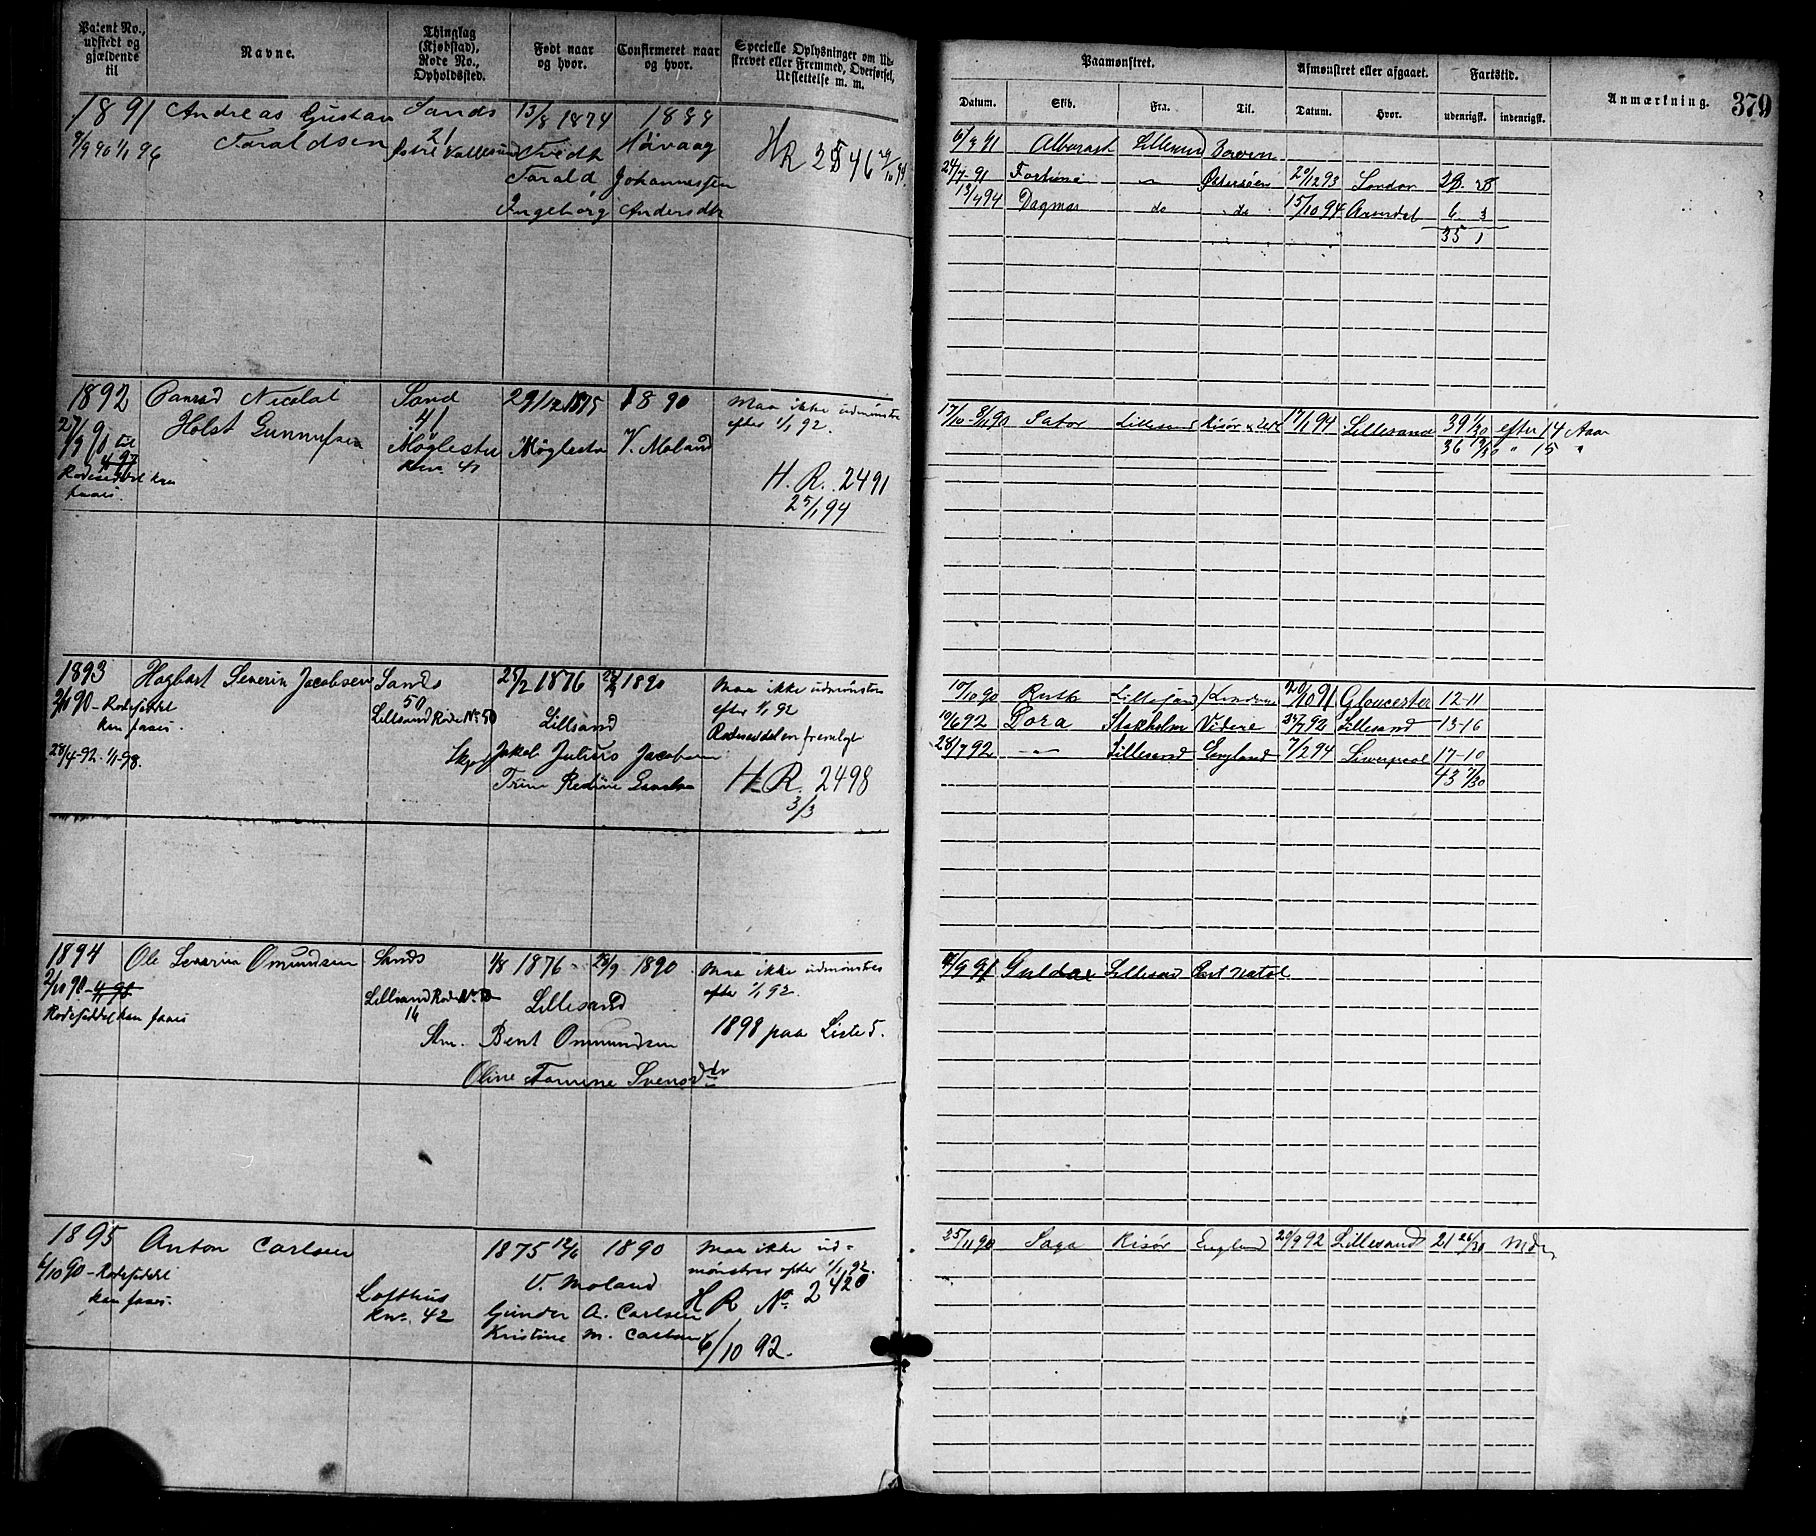 Patent No., udstedt og gjældende til
Navne.
Thinglag (Kjøbstad), Rode No., Opholdssted.
Født naar og hvor.
Confirmeret naar og hvor.
Specielle Oplysninger om Udskrevet eller Fremmed, Overførsel, Udslettelse m. m.
Paamønstret.
Afmønstret eller afgaaet.
Fartstid.
Anmærkning.
379
Datum.
Skib.
Fra.
Til.
Datum.
Hvor.
udenrigsk.
indenrigsk.
1891 Andreas Gustav Sands 13/8 1874 1888
Taraldsen 21
9/9 90 1/1 96 Østre Vallesund Tvedt Høivaag
H R 2546 29/10 94.
Tarald Johannessen
Ingeborg Andersdtr
6/4 91 Lillesand
24/7 91 Fortuna Østersøen 20/12 93 London 28 28
13/4 94 Dagmar do do 15/10 94 Arendal 6 3
35 1
1892 Conrad Nicolai Sand 29/12 1875 1890 Maa ikke udmønstres
Holst 41 efter 1/1 92.
Møglestu Møglestu V. Moland
Rodeseddel kan
faaes.
H. R. 2491
25/1 94
17/10-8/11 90 Sator Lillesand 17/1 94 Lillesand 39 1/30 efter 14 Aar
36 15 "
1893 Hagbart Severin Jacobsen Sands 25/2 1876 1890 Maa ikke udmønstres
50 efter 1/1 92
2/10 90 - Rodeseddel Lillesand Rode No 50 Lillesand Rodeseddelen fremlagt
kan faaes.
28/4-92. 1/1-98. Jakob Julius Jacobsen
H. R. 2498
3/3
10/10 90 Ruth Lillesand 20/10 91 Gloucester 12-11
10/6 92 Dora Stokholm 24/7 92 Lillesand 13-16
28/7 92 Lillesand England 7/2 94 Liverpool 17-10
43 7/30
1894 Ole Severin Omundsen Sands 1/8 1876 28/9 1890 Maa ikke udmønstres
efter 1/1 92.
2/10 90 - Lillesand Rode No Lillesand
Rodeseddel kan faaes 16
1898 paa Liste 5.
Bent Ommundsen
Oline Svensdtr
9 91 Lillesand Port Natal
1895 Anton Carlsen 1875 12/6 1890 Maa ikke ud-
mønstres efter 1/1 92.
6/10 90 - Rodeseddel V. Moland
kan faaes. Lofthus
Kno. 42 Gunder A. Carlsen H R No. 2420
Kristine M. Carlsen
6/10 92.
25/11 90 Saga Risør England 29/9 92 Lillesand 21 26/30